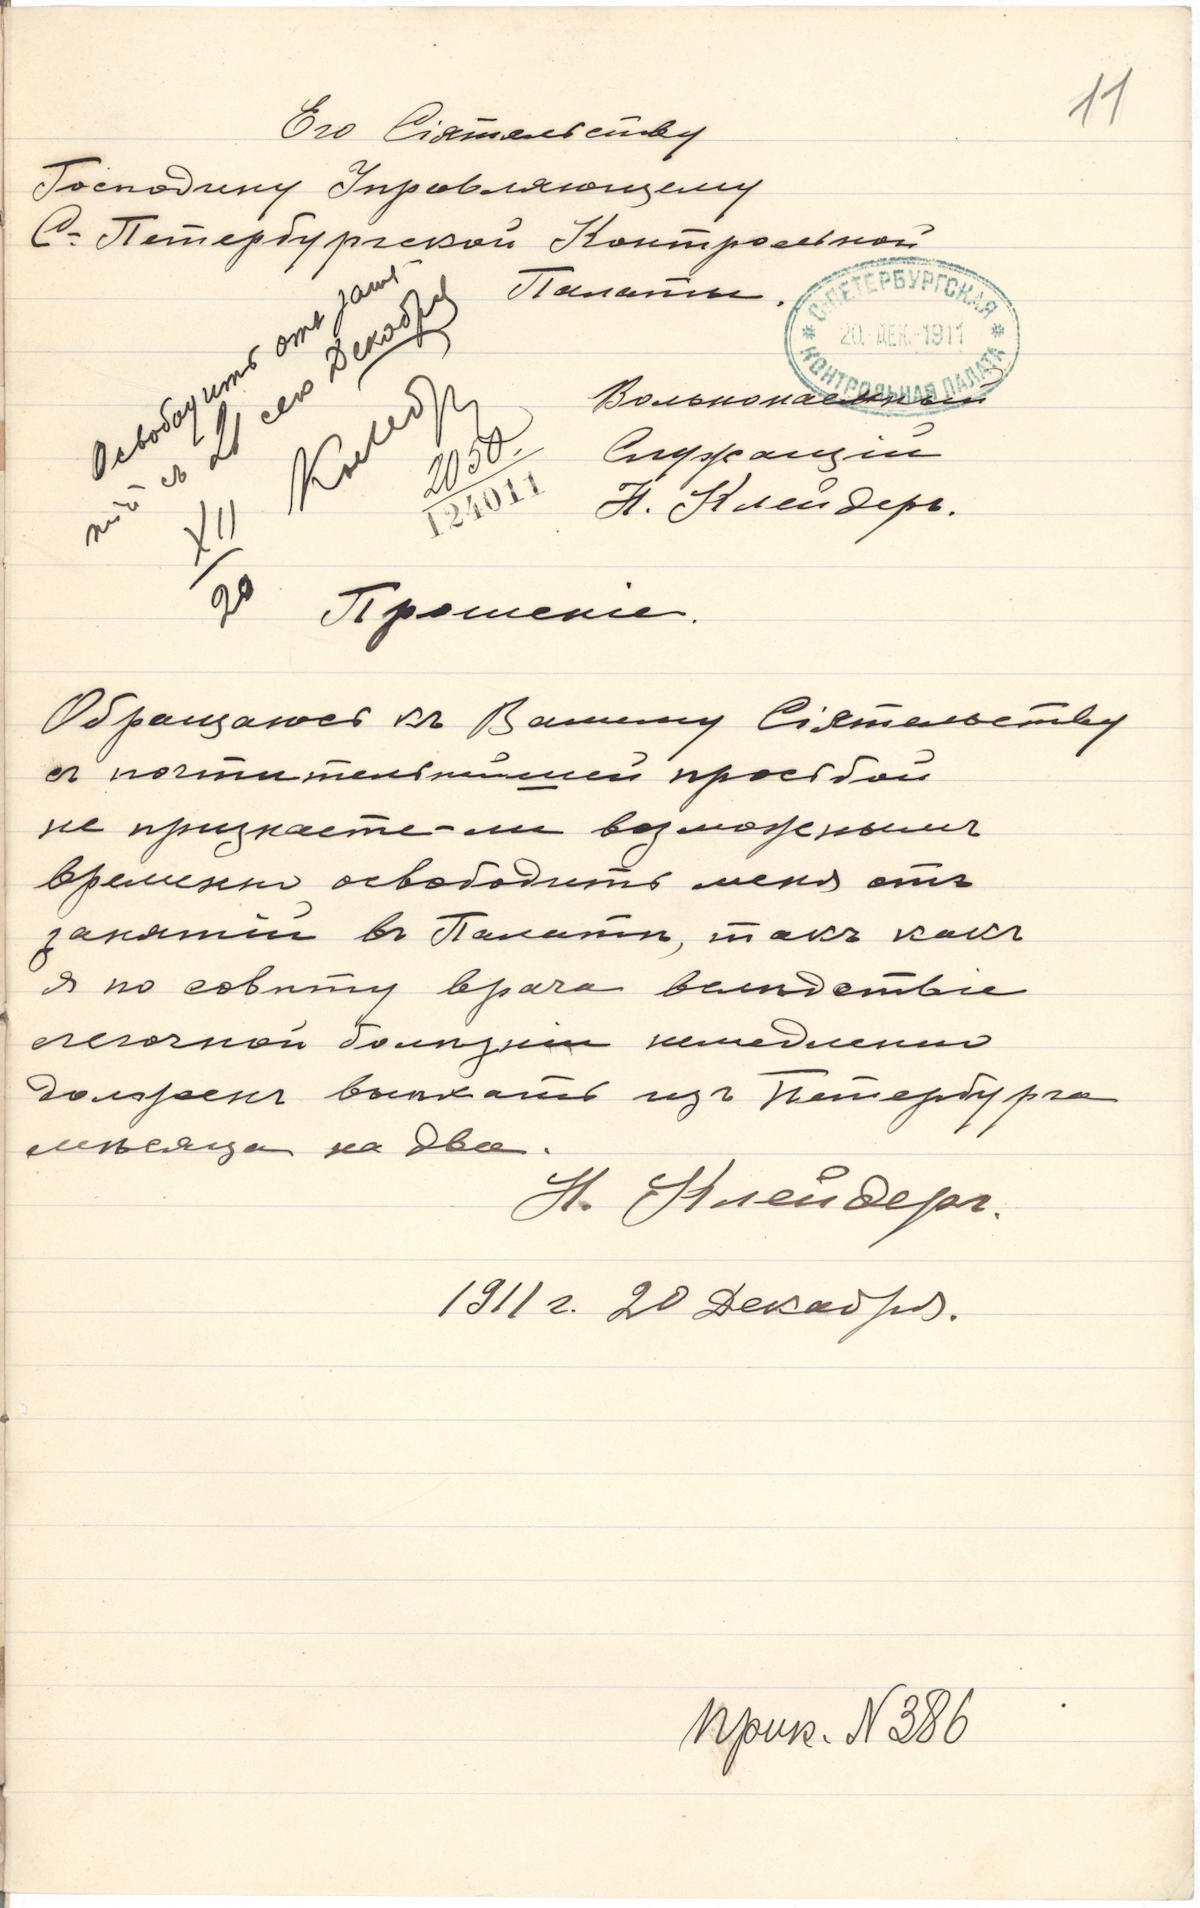 11
Его Сіятельству
Господину Управляющему
С-Петербургской Контрольной
Палаты.
С.ПЕТЕРБУРГСКАЯ
20. ДЕК. 1911
КОНТРОЛЬНАЯ ПАЛАТА
Освободить отъ заня
тій съ 21 сего Декабря
XII
20
2050.
124011
Вольнонаемный
Служащій
Н. Клейдеръ.
Прошеніе.
Обращаюсь къ Вашему Сіятельству
съ почтительнѣйшей просьбой
не признаете-ли возможнымъ
временно освободить меня отъ
занятій въ Палатѣ, такъ какъ
я по совѣту врача вслѣдствіе
легочной болѣзни немедленно
долженъ выѣхать изъ Петербурга
мѣсяца на два.
Н. Клейдеръ.
1911 г. 20 Декабря.
прик. N 386